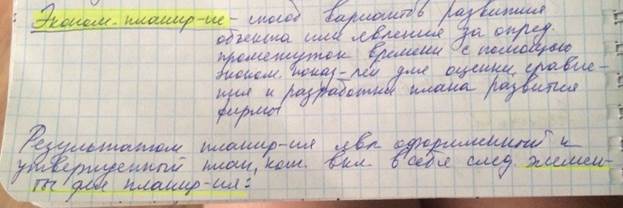 Эконом. планир-ие - способ вариантов развития
объекта или явления за опред.
промежуток времени с помощью
эконом. показ-лей для оценки, сравне-
ния и разработки плана развития
фирмы
Результатом планир-ия явл оформленный и
утвержденный план, кот. вкл. в себя след. элемен-
ты для планир-ия: